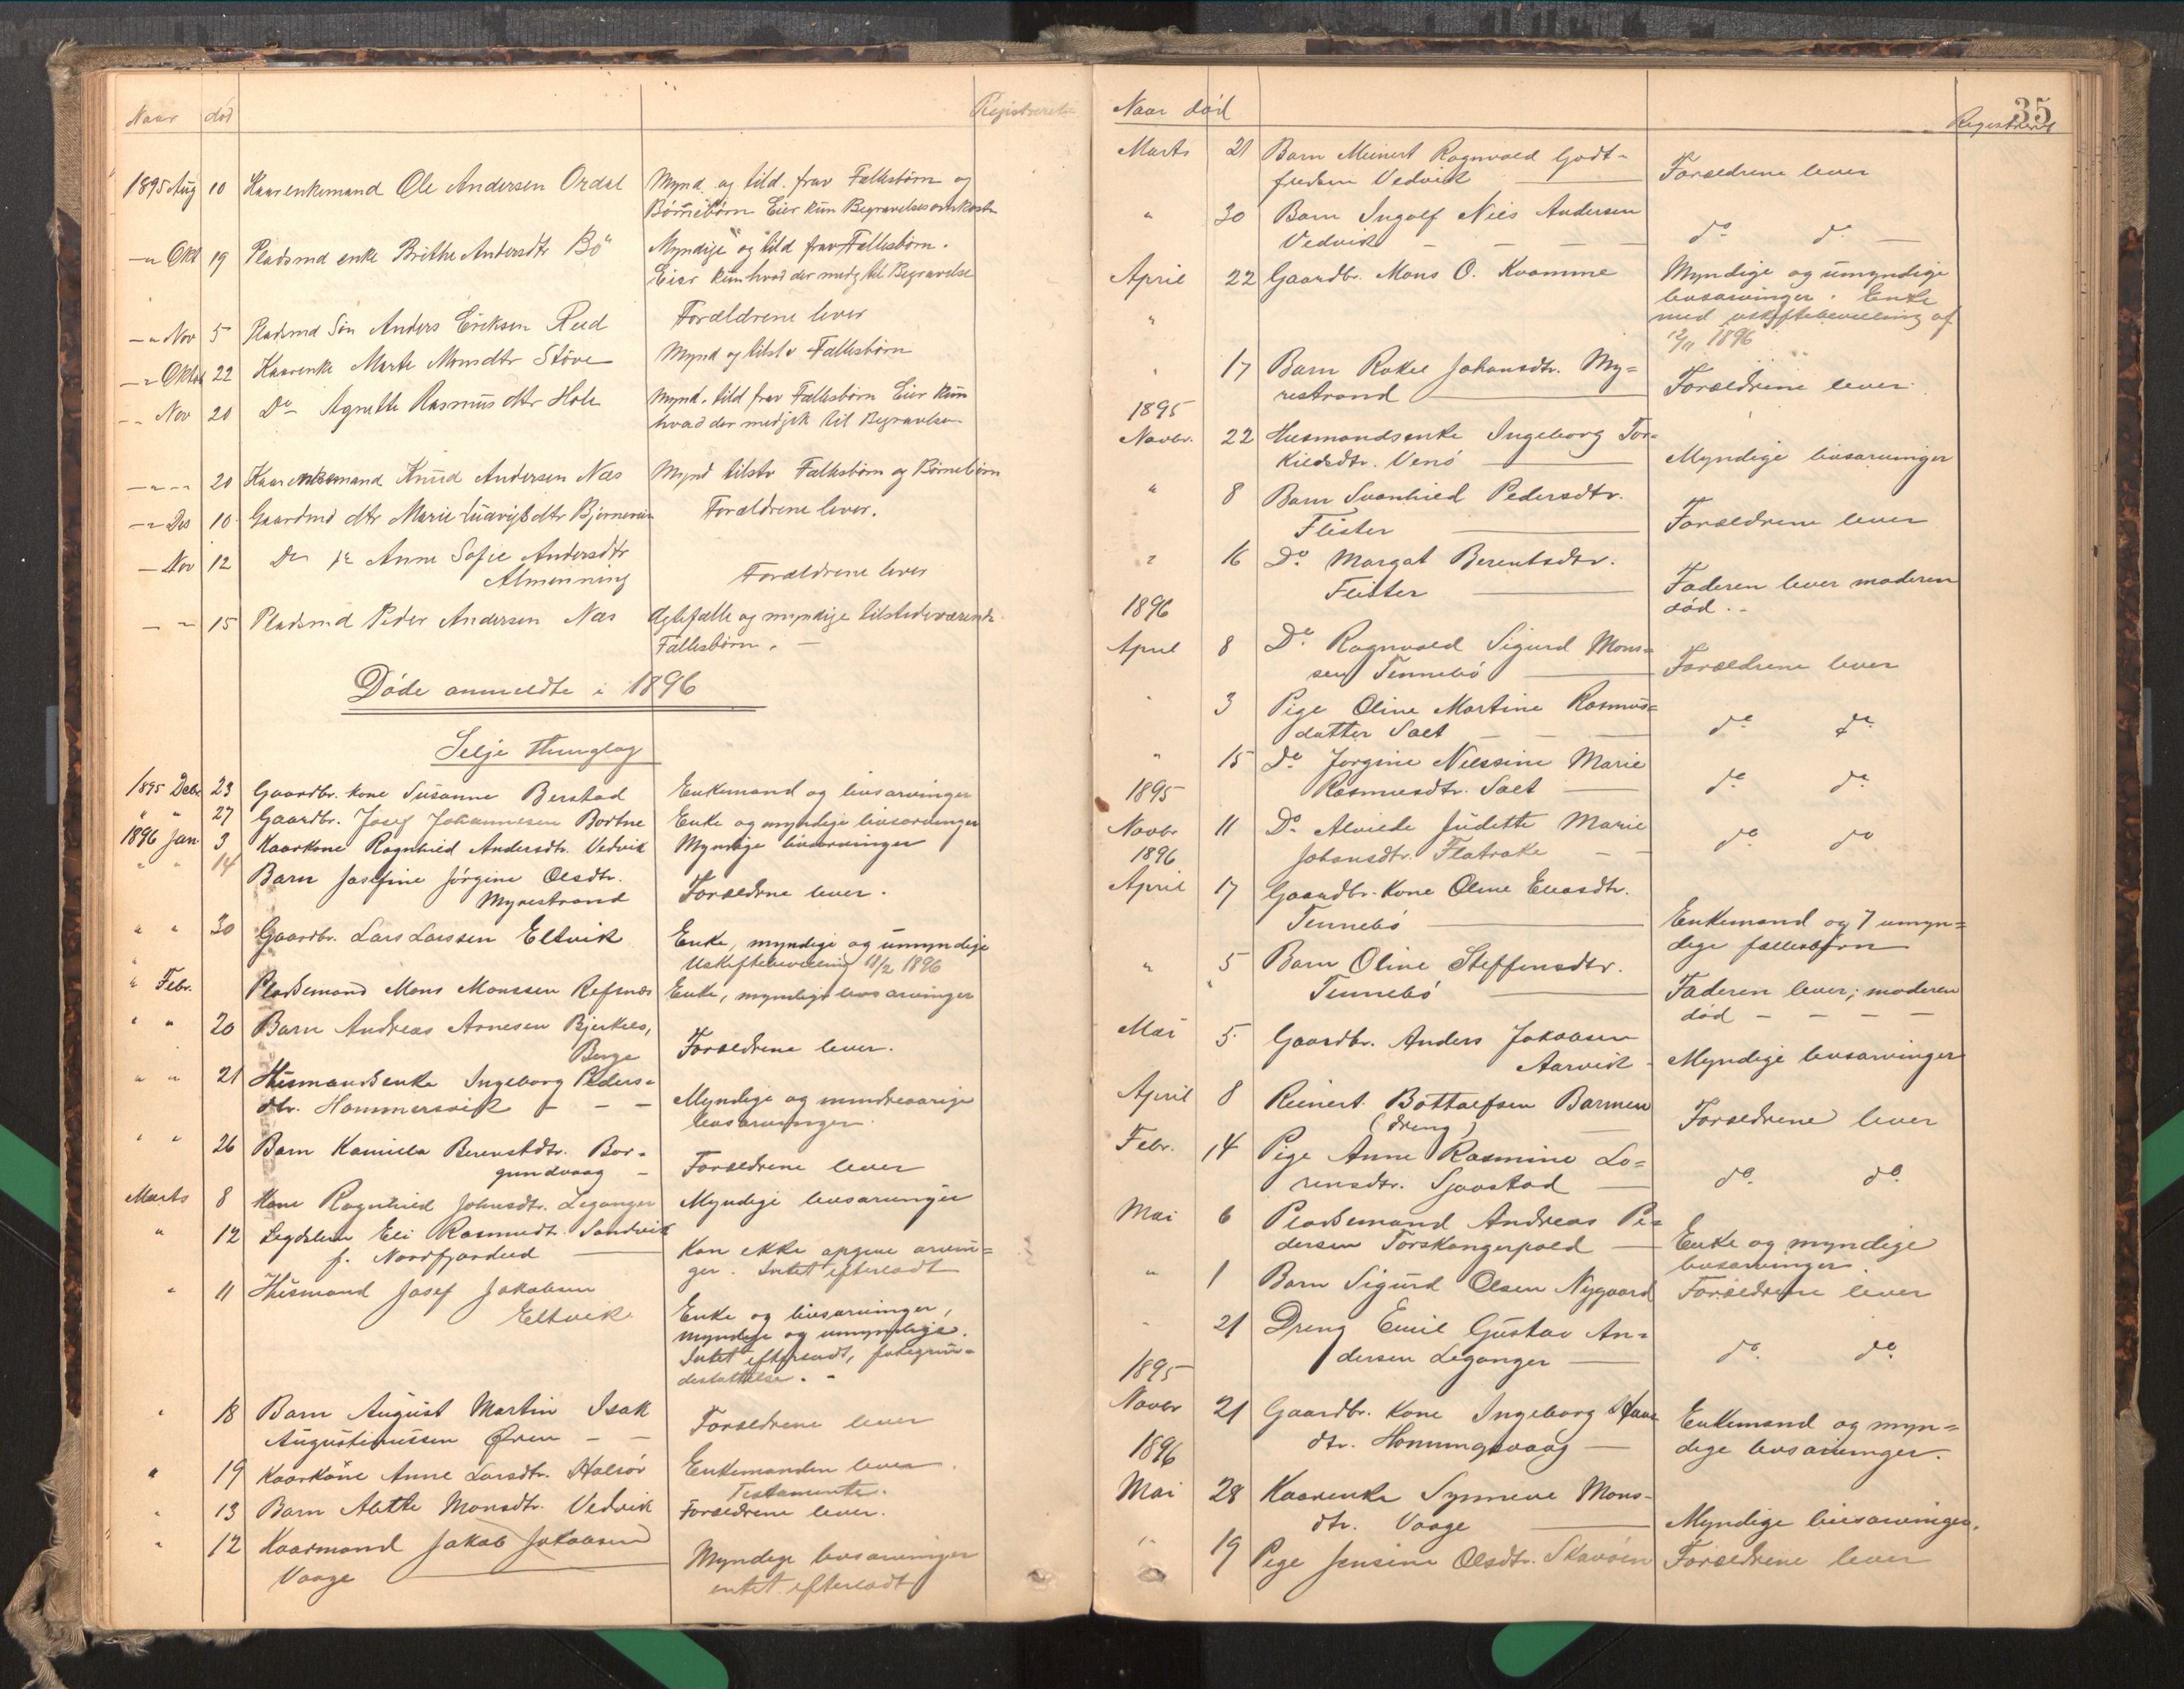 Naar død Registreret
1895 Aug 10 Kaarenkemand Ole Andersen Ordal Mynd. og tild. frav Fællesbørn og
Børnebørn Eier kun Begravelsesomkostn
—„ Okt 19 Pladsmd enke Brithe Andersdtr Bö Myndige og tild frav Fællesbörn.
Eier kun hvad der medg til Begravelse
—„ Nov 5 Pladsmd Sön Anders Eriksen Rud Forældrene lever
—„ Oktob 22 Kaarenke Marte Monsdtr Stöve Mynd og tilstv Fællesbörn
—„ Nov 20 Do Agnette Rasmusdtr Hole Mynd. tild frav Fællesbörn Eier kun
hvad der medgik til Begravelse
—„ — 20 Kaarenkemand Knud Andersen Næs Mynd tilstv Fællesbörn og Börnebörn
—„ Des 10 Gaardmd dtr Marie Ludvigsdtr Forældrene lever.
— Nov 12 Do Do Anne Sofie Andersdtr
Almenning Forældrene lever
— „ 15 Pladsmd Peder Andersen Næs Ægtefælle og myndige tilstedeværende
Fællesbörn. —
Döde anmeldte i 1896
Selje Thinglag
1895 Debr 23 Gaardbr. kone Susanne Berstad Enkemand og livsarvinger
„ „ 27 Gaardbr. Josef Johannesen Bortne Enke og myndige livsarvinger
1896 Jan. 3 Kaarkone Ragnhild Andersdtr. Vedvik Myndige livsarvinger
„ „ 14 Barn Josefine Jörgine Olsdtr.
Myrestrand Forældrne lever.
„ „ 30 Gaardbr. Lars Larssen Eltvik Enke, myndige og umyndige
Uskiftebevilling 11/2 1896
„ Febr. Pladsemand Mons Monssen Refsnæs Enke, myndige livsarvinger
„ „ 20 Barn Andreas Arnesen Bjerkelo,
Berge Forældrene lever.
„ „ 21 Husmandsenke Ingeborg Peders-
dtr. Hammersvik — — — Myndige og mindreaarige
livsarvinger.
„ „ 26 Barn Kamilla Berentsdtr. Bor-
gundvaag — Forældrene lever
Marts 8 Kone Ragnhild Johnsdtr. Leganger Myndige livsarvinger
„ 12 Legdslem Eli Rasmusdt. Sandvik
f. Nordfjordeid — Kan ikke opgive arvin=
ger. Intet efterladt
„ 11 Husmand Josef Jakobsen
Eltvik Enke og livsarvinger,
myndige og umyndige.
Intet efterladt,
„ 18 Barn August Martin Isak
Augustinussen Øren — — Forældrene lever
„ 19 Kaarkone Anne Larsdtr. Halsör Enkemanden lever.
Testamente.
„ 13 Barn Alette Monsdtr. Vedvik Forældrene lever.
„ 12 Kaarmand Jakob Jakobsen
Vaage Myndige livsarvinger
intet efterladt
35
Naar død Registreret
Marts 21 Barn Meinert Ragnvald Godt-
fredsen Vedvik — Forældrene lever
„ 30 Barn Ingolf Nils Andersen
Vedvik — — — do do —
April 22 Gaardbr. Mons O. Kvamme Myndige og umyndige
livsarvinger. Enke
„ med uskiftebevilling af
1896
„ 17 Barn Rakel Johansdtr. My=
restrand — Forældrene lever.
1895
Novbr. 22 Husmandsenke Ingeborg Tor-
kildsdtr. Venö — Myndige livsarvinger
„ 8 Barn Svanhild Pedersdtr.
Flister — Forældrene lever
„ 16 Do Margat Berentsdtr.
Flister — Faderen lever moderen
1896 död. -
April 8 Do Ragnvald Sigurd Mons=
sen Tennebö — Forældrene lever
„ 3 Pige Oline Martine Rasmus=
datter Salt — — do do
„ 15 Do Jörgine Nilssine Marie
Rasmusdtr. Salt — do do
1895
Novbr 11 Do Alvilde Judette Marie
Johansdtr. Flatrake — — do do
1896
April 17 Gaardbr. Kone Oline Eliasdtr.
Tennebö — Enkemand og 7 umyn=
dige fællesbørn
„ 5 Barn Oline Steffensdtr.
Tennebö — Faderen lever; moderen
död — — — —
Mai 5 Gaardbr. Anders Jakobsen
Aarvik — Myndige livsarvinger
April 8 Reinert Bottolfsen Barmen
(dreng) — Forældrene lever
Febr. 14 Pige Anne Rasmine Lo=
rensdtr. Sjaastad — do. do.
Mai 6 Pladsemand Andreas Pe=
dersen Torskangerpold — Enke og myndige
livsarvinger
„ 1 Barn Sigurd Olsen Nygaard Forældrene lever
„ 21 Dreng Emil Gustav An=
dersen Leganger — do. do.
1895
Novbr 21 Gaardbr. kone Ingeborg
dtr. Honningsvaag — Enkemand og myn=
1896 dige livsarvinger.
Mai 28 Kaarenke Synneve Mons-
dtr. Vaage — Myndige livsarvinger.
„ 19 Pige Jensine Olsdtr. Skavöen Forældrene lever